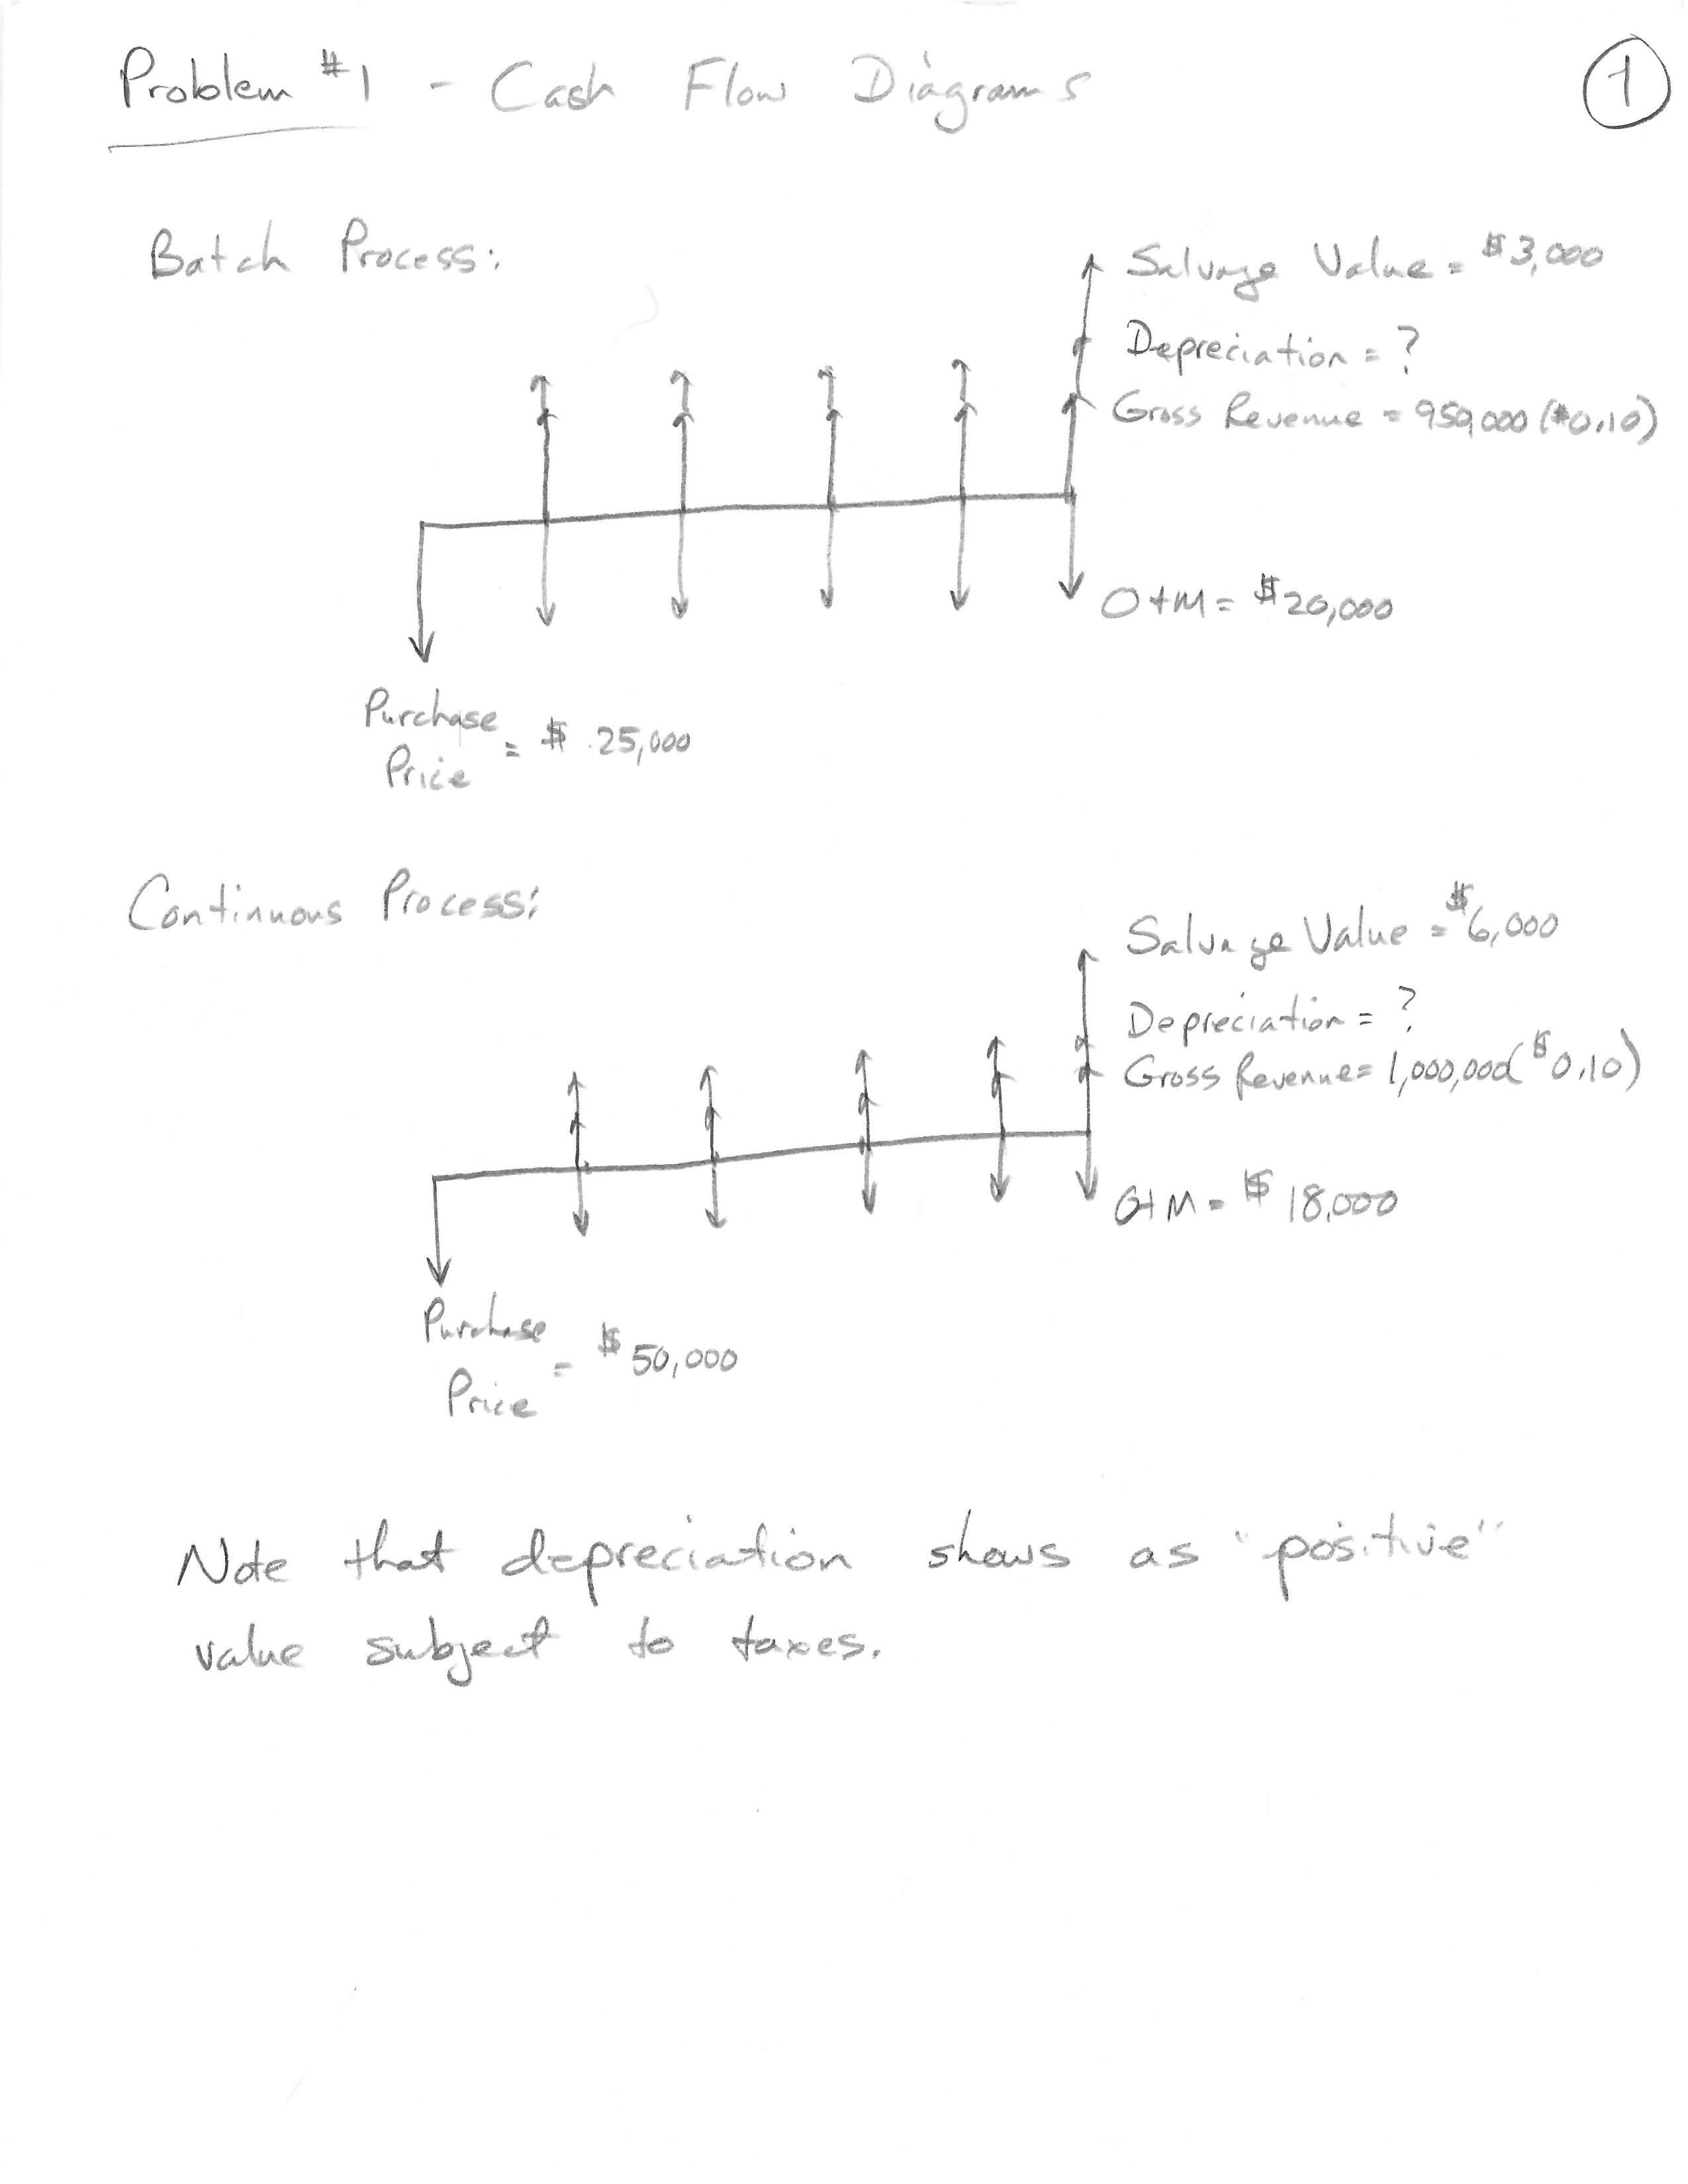 Problem #1 - Cash Flow Diagrams
1
Batch Process:
Salvage Value = $3,000
Depreciation = ?
Gross Revenue = 950,000 ($0.10)
O+M = $20,000
Purchase
Price = $ 25,000
Continuous Process:
Salvage Value = $6,000
Depreciation = ?
Gross Revenue = 1,000,000($0.10)
O+M = $ 18,000
Purchase
Price = $ 50,000
Note that depreciation shows as "positive"
value subject to taxes.